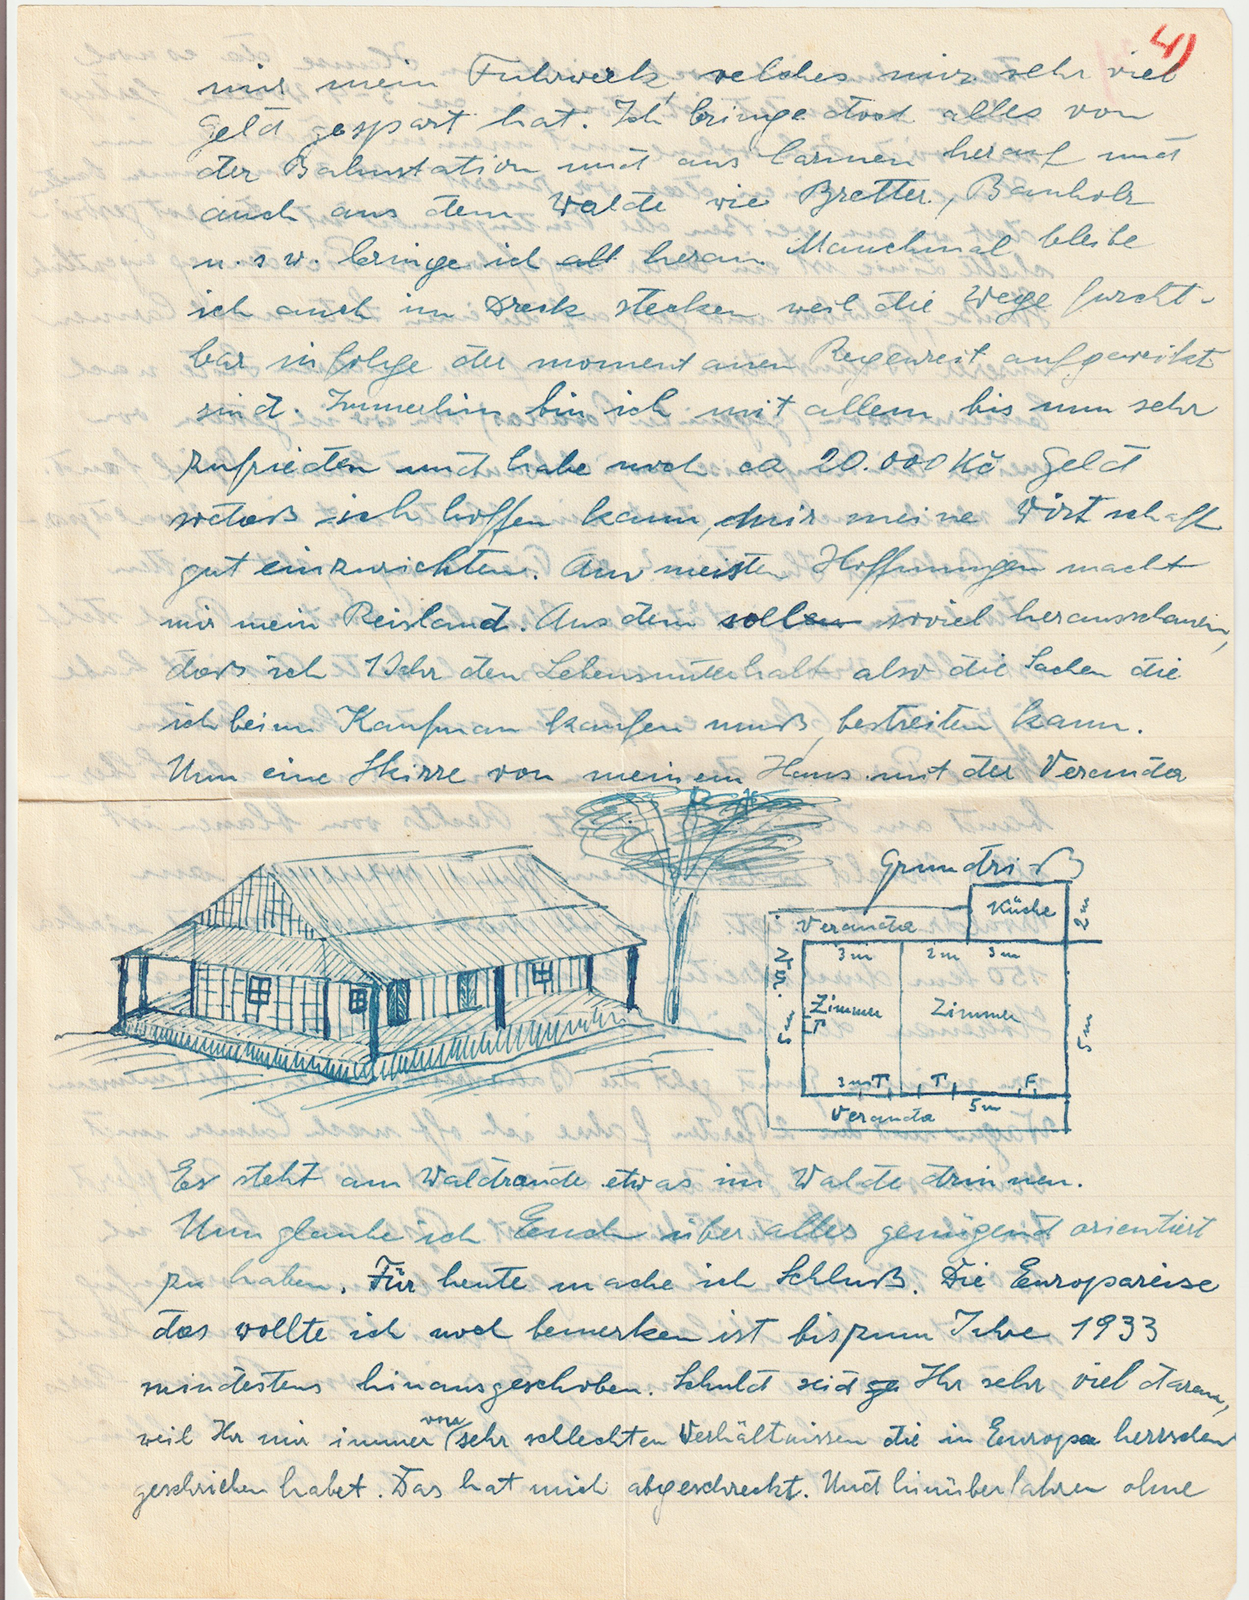 4)
mir mein Fuhrwerk, welches mir sehr viel
Geld gespart hat. Ich bringe doch alles von
der Bahnstation und aus Carmen herauf und
auch aus dem Walde wie Bretter, Bauholz
u.s.w. bringe ich all heran. Manchmal bleibe
ich auch im Dreck stecken weil die Wege furcht-
bar infolge der momentanen Regenzeit aufgeweicht
sind. Immerhin bin ich mit allem bis nun sehr
zufrieden und habe noch ca 20.000 Kč Geld
sodass ich hoffen kann, mir meine Wirtschaft
gut einzurichten. Am meisten Hoffnungen macht
mir mein Reisland. Aus dem soll soviel herausschauen,
dass ich 1 Jahr den Lebensunterhalt also die Sachen die
ich beim Kaufman kaufen muß, bestreiten kann.
Nun eine Skizze von meinem Haus mit der Veranda
Grundriß
Küche
2 m
Veranda
3 m
2 m
3 m
Zimmer
T
Zimmer
5 m
3 m
T
T
F
5 m
Veranda
Es steht am Waldrande etwas im Walde drinnen.
Nun glaube ich Euch über alles genügend orientiert
zu haben. Für heute mache ich Schluß. Die Europareise
das wollte ich noch bemerken ist bis zum Jahre 1933
mindestens hinausgeschoben. Schuld seid Ihr sehr viel daran,
weil Ihr mir immer von sehr schlechten Verhältnissen die in Europa herrschen
geschrieben habet. Das hat mich abgeschreckt. Und hinüberfahren ohne